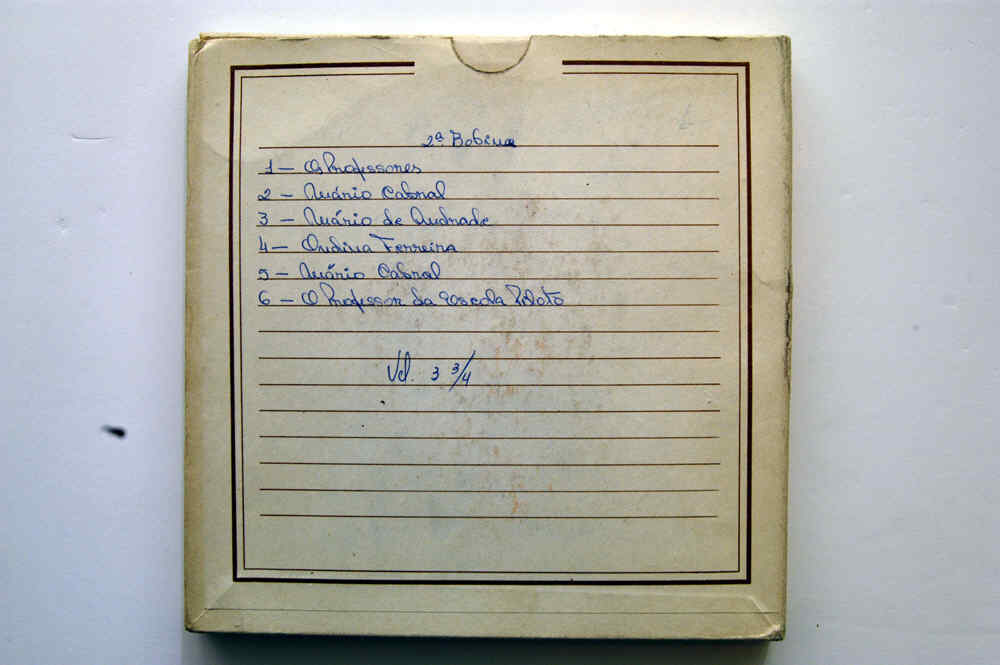 2ª Bobina
1 – Os Professores
2 – Mário Cabral
3 – Mário de Andrade
4 – Ondina Ferreira
5 – Mário Cabral
6 – O Professor da Escola Piloto
Vel. 3 3/4